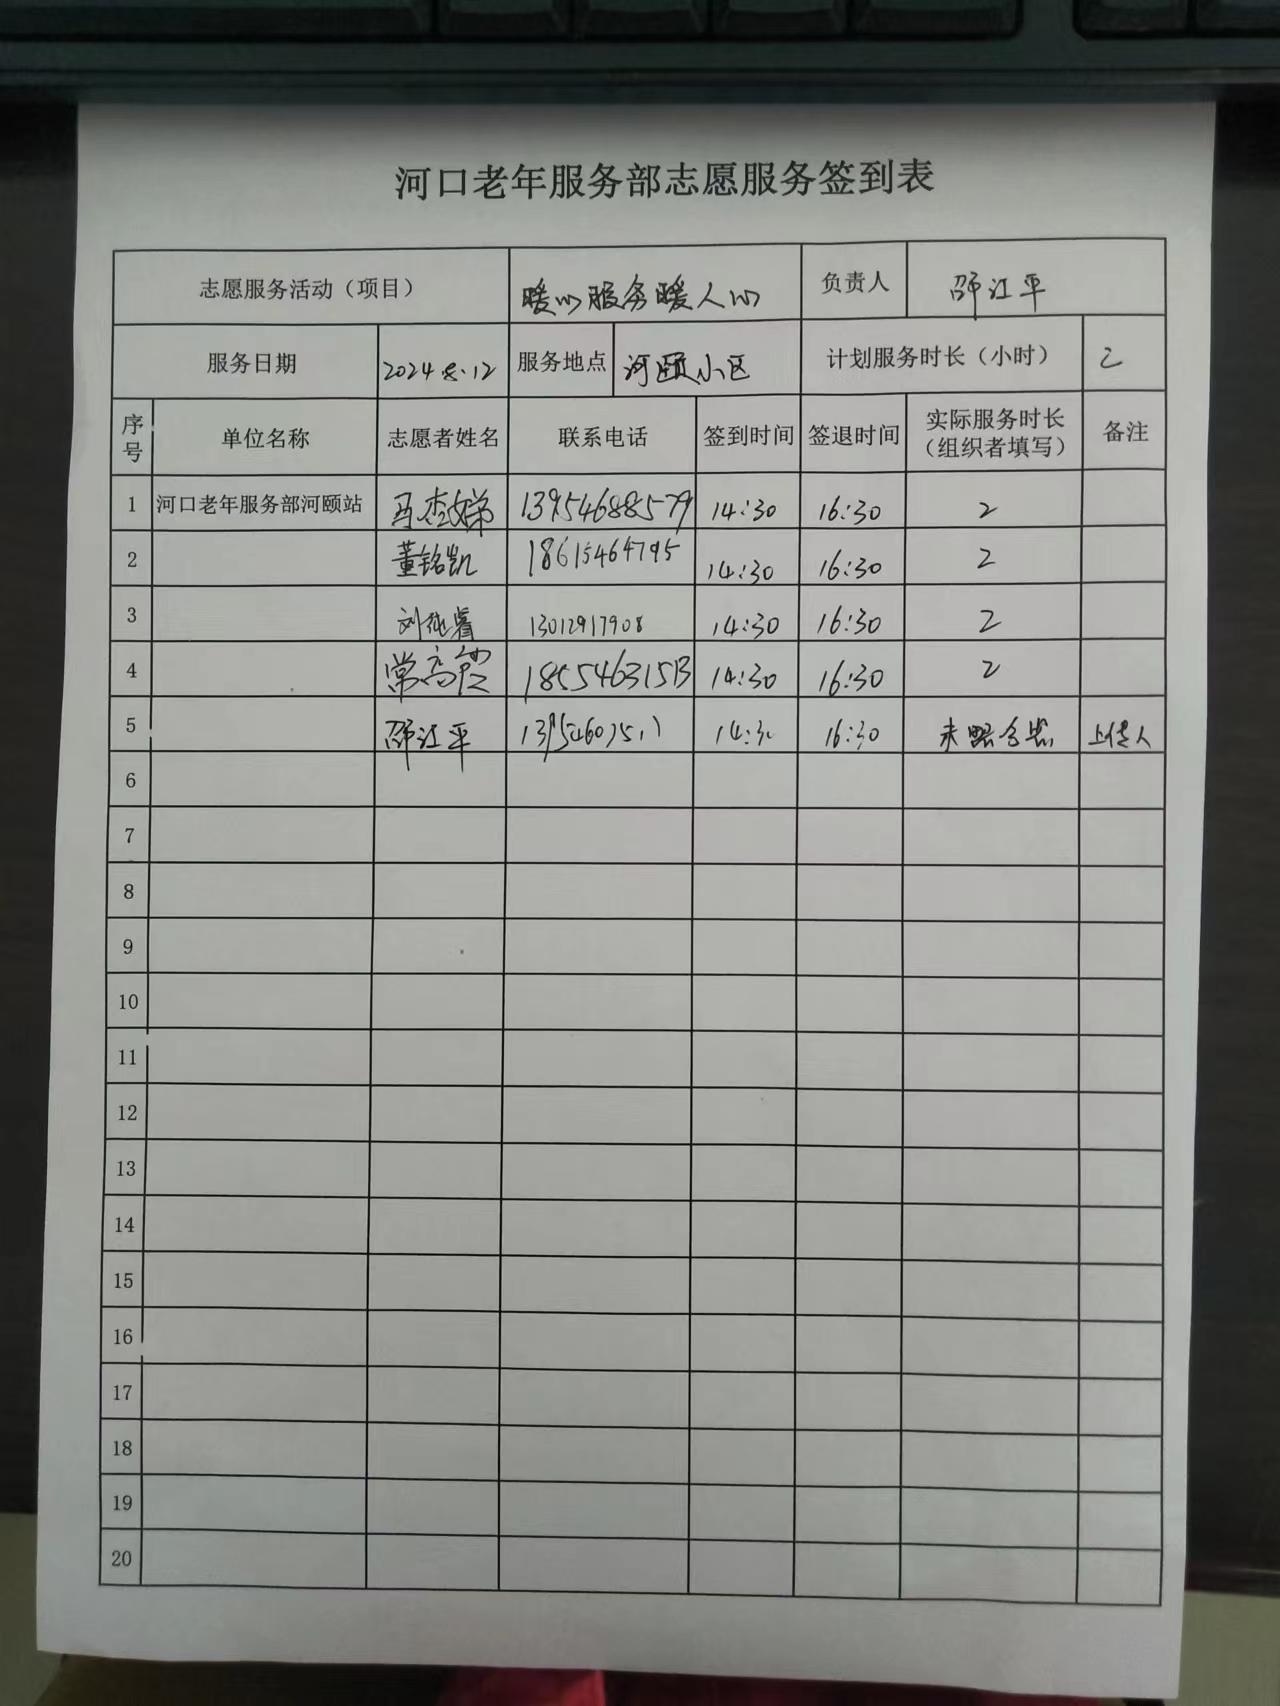 河口老年服务部志愿服务签到表
志愿服务活动（项目） 暖心服务暖人心 负责人 邵江平
服务日期 2024.8.12 服务地点 河颐小区 计划服务时长（小时） 2
序号 单位名称 志愿者姓名 联系电话 签到时间 签退时间 实际服务时长（组织者填写） 备注
1 河口老年服务部河颐站 13954688579 14:30 16:30 2
2 董铭凯 18615464795 14:30 16:30 2
3 13012917908 14:30 16:30 2
4 14:30 16:30 2
5 邵江平 16:30 上传人
6
7
8
9
10
11
12
13
14
15
16
17
18
19
20